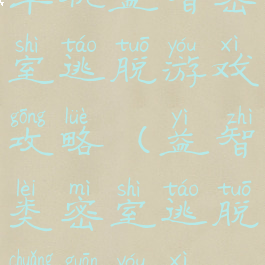 益智密
shì táo tuō yóu xì
室逃脱游戏
gōng lüè yì zhì
攻略（益智
lèi mì shì táo tuō
类密室逃脱
chuǎng guān yóu xì